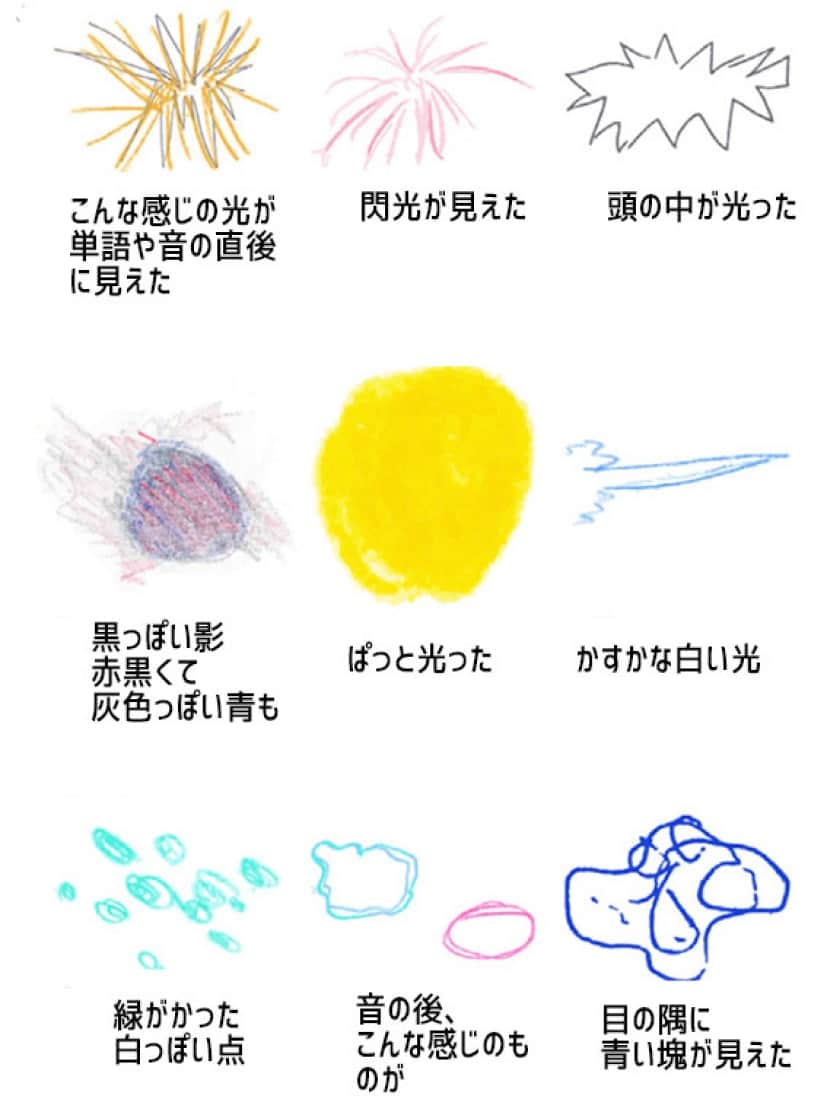 こんな感じの光が
単語や音の直後
に見えた
閃光が見えた
頭の中が光った
黒っぽい影
赤黒くて
灰色っぽい青も
ぱっと光った
かすかな白い光
緑がかった
白っぽい点
音の後、
こんな感じのも
のが
目の隅に
青い塊が見えた